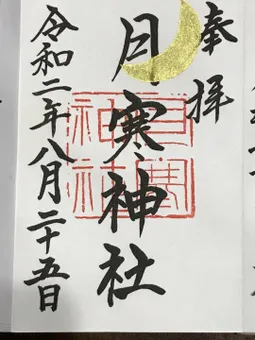 奉拝
月寒神社
令和二年八月二十五日
月寒神社